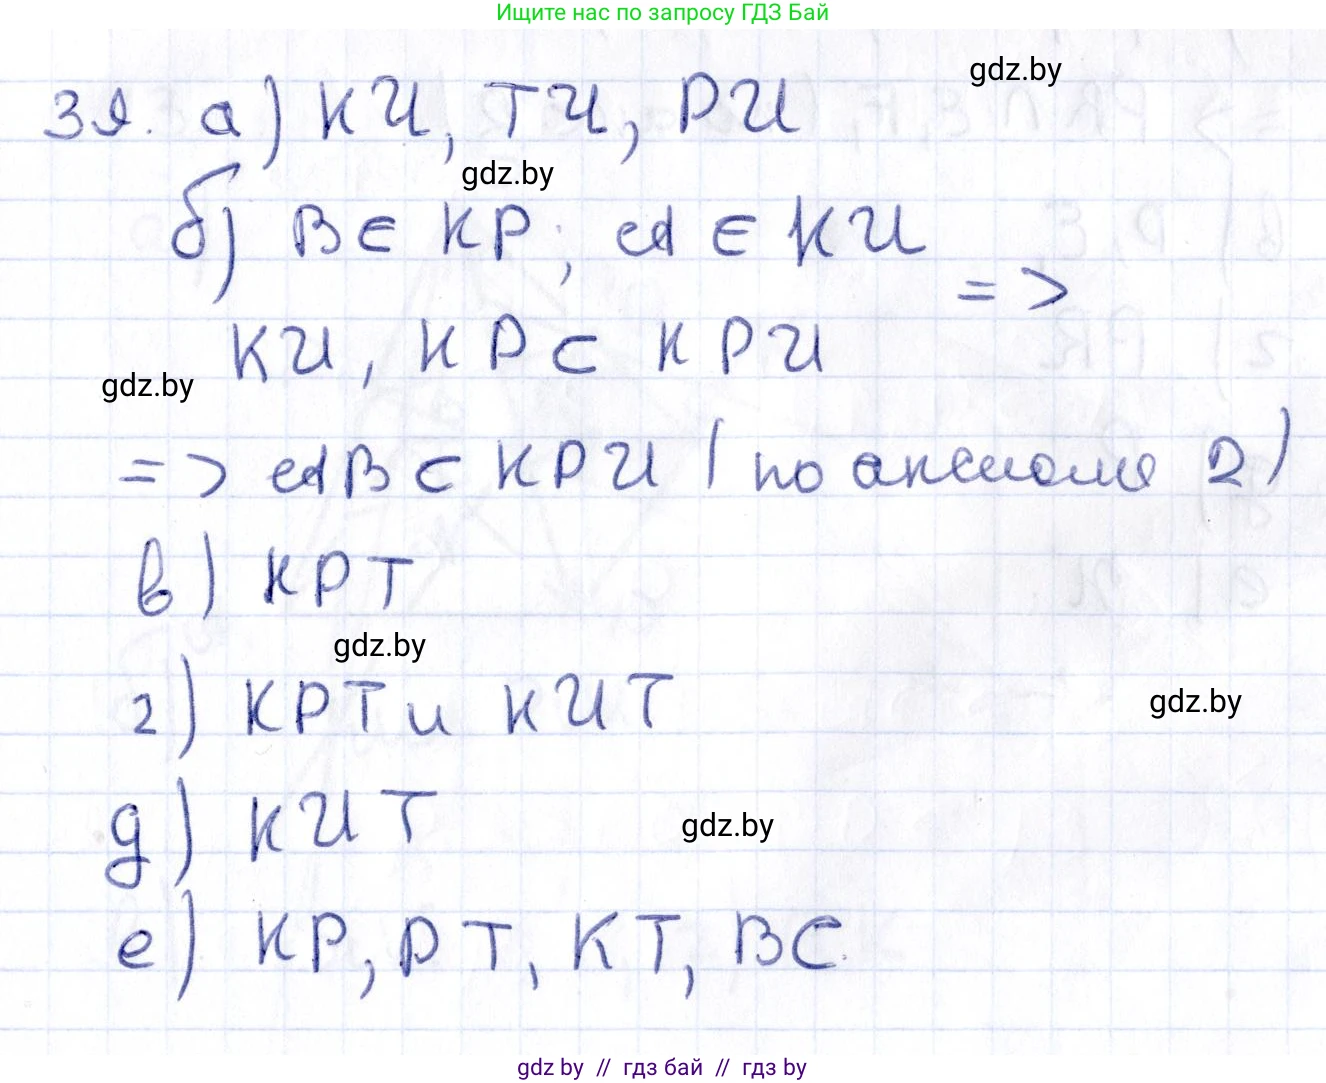 Ищите нас по запросу ГДЗ Бай
gdz.by
39. а) КИ, ТИ, РИ
gdz.by
б) В ∈ КР; А ∈ КИ
=>
КИ, КР ⊂ КРИ
gdz.by
=> АВ ⊂ КРИ (по аксиоме 2)
в) КРТ
gdz.by
г) КРТ и КИТ
gdz.by
д) КИТ
gdz.by
е) КР, РТ, КТ, ВС.
gdz by // гдз бай // gdz by